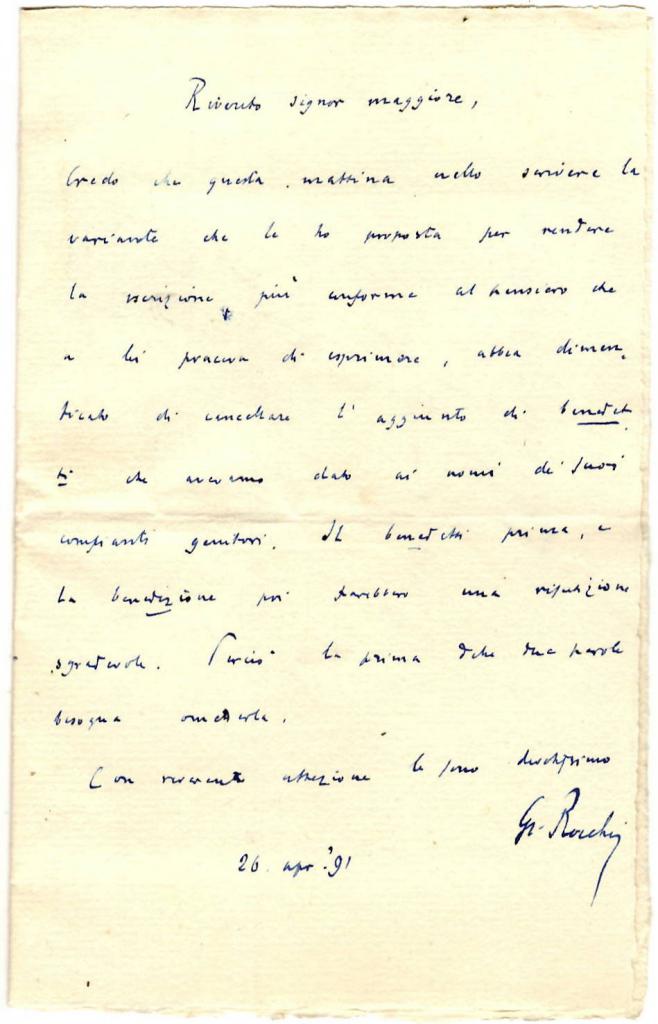 Riverito signor maggiore,
Credo che questa mattina nello scrivere la
variante che le ho proposta per rendere
la iscrizione più conforme al pensiero che
a lei piaceva di esprimere, abbia dimen,
ticato di cancellare l'aggiunto di benedet
ti che avevamo dato ai nomi de' suoi
compianti genitori. Il benedetti prima, e
la benedizione poi farebbero una ripetizione
sgradevole. Perciò la prima delle due parole
bisogna ometterla.
Con riverente affezione le sono devotissimo
Gi. Rocchi
26. apr. '91